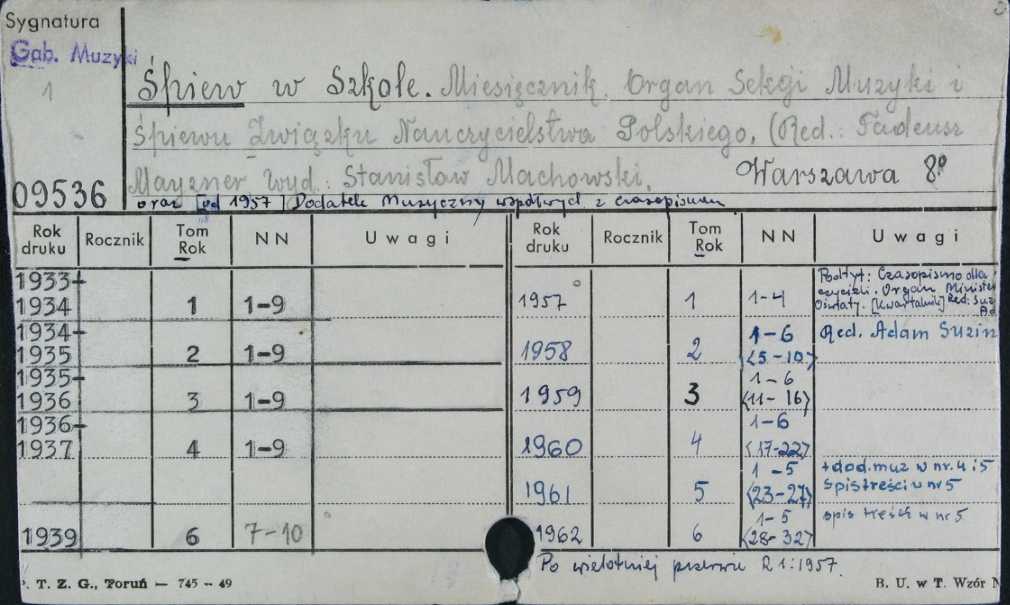 Sygnatura
Gab. Muzyki
1
Śpiew w Szkole. Miesięcznik. Organ Sekcji Muzyki i
Śpiewu Związku Nauczycielstwa Polskiego. (Red.: Tadeusz
Mayzner Wyd.: Stanisław Machowski. Warszawa 8º
09536
oraz [od 1957] Dodatek Muzyczny z czasopismem
Rok druku Rocznik Tom Rok NN Uwagi Rok druku Rocznik Tom Rok NN Uwagi
1933-
1934 1 1-9
1934-
1935 2 1-9
1935-
1936 3 1-9
1936-
1937 4 1-9
1939 6 7-10
1957 1 1-4 Podtyt: Czasopismo dla
Organ Minister
Oświaty. [Kwartalnik] Red: Suz
Ad
1958 2 1-6 Red. Adam Suzin
<5-10>
1959 3 1-6
<11-16>
1960 4 1-6
<17-22>
1961 5 1-5 + dod. muz w nr. 4 i 5
<23-27> spis treści w nr 5
1962 6 1-5 spis treści w nr 5
<28-32>
Po wieloletniej przerwie R 1:1957.
. T. Z. G., Toruń — 745 -- 49
B. U. w T. Wzór N